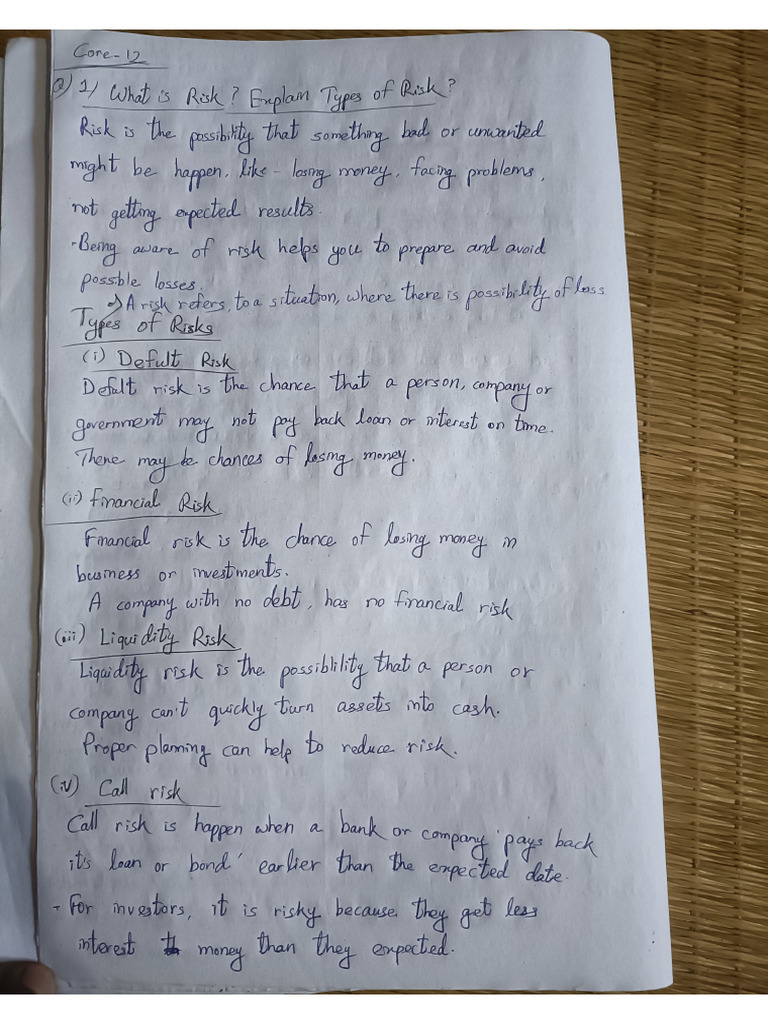 Core-12
Q) 1) What is Risk? Explain Types of Risk?
Risk is the possibility that something bad or unwanted
might be happen, like - losing money, facing problems,
not getting expected results.
- Being aware of risk helps you to prepare and avoid
possible losses.
=> A risk refers, to a situation, where there is possibility of loss
Types of Risks
(i) Defult Risk
Defult risk is the chance that a person, company or
government may not pay back loan or interest on time.
There may be chances of losing money.
(ii) Financial Risk
Financial risk is the chance of losing money in
business or investments.
A company with no debt, has no financial risk
(iii) Liquidity Risk
Liquidity risk is the possiblility that a person or
company can't quickly turn assets into cash.
Proper planning can help to reduce risk.
(iv) Call risk
Call risk is happen when a bank or company 'pays back
it's loan or bond' earlier than the expected date.
- For investors, it is risky because they get less
interest money than they expected.